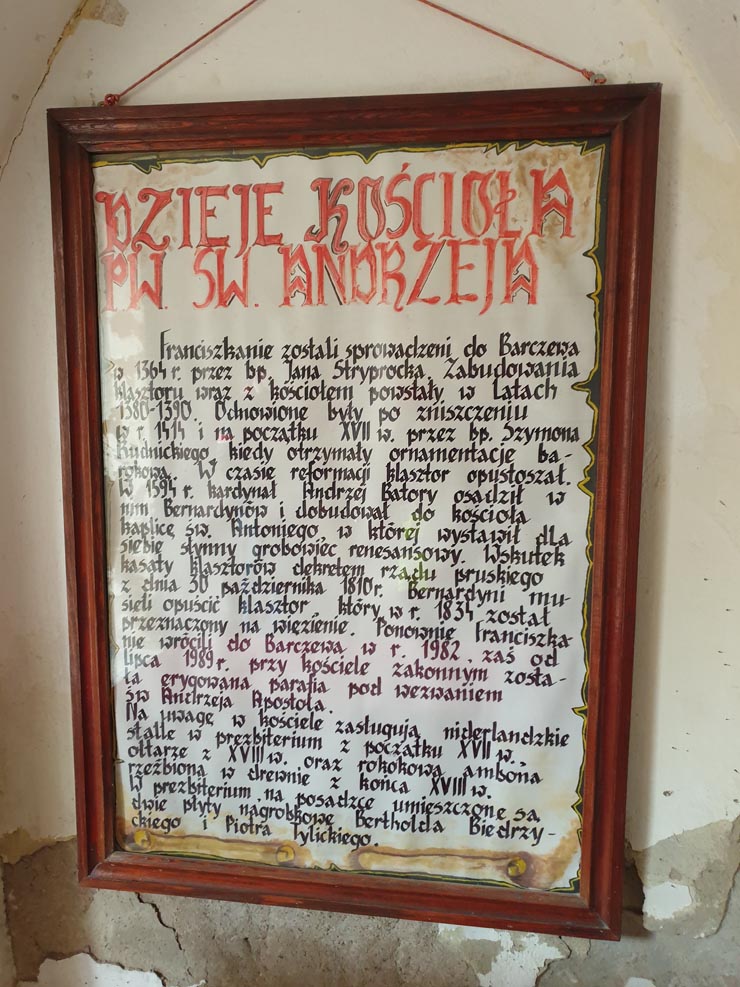 DZIEJE KOŚCIOŁA
PW. ŚW. ANDRZEJA
Franciszkanie zostali sprowadzeni do Barczewa
w 1364 r. przez bp. Jana Stryprocka. Zabudowania
klasztoru wraz z kościołem powstały w Latach
1380-1390. Odnowione były po zniszczeniu
w r. 1414 i na początku XVII w. przez bp. Szymona
Rudnickiego, kiedy otrzymały ornamentację ba-
rokową. W czasie reformacji klasztor opustoszał.
W 1594 r. kardynał Andrzej Batory osadził w
nim Bernardynów i dobudował do kościoła
kaplicę św. Antoniego, w której wystawił dla
siebie słynny grobowiec renesansowy. Wskutek
kasaty klasztorów dekretem rządu pruskiego
z dnia 30 października 1810r. Bernardyni mu-
sieli opuścić klasztor, który w r. 1834 został
przeznaczony na więzienie. Ponownie Franciszka-
nie wrócili do Barczewa w r. 1982, zaś od
lipca 1989 r. przy kościele zakonnym zosta-
ła erygowana parafia pod wezwaniem
św Andrzeja Apostoła.
Na uwagę w kościele zasługują niderlandzkie
stalle w prezbiterium z początku XVII w.,
ołtarze z XVIII w. oraz rokokowa ambona
rzeźbiona w drewnie z końca XVIII w.
W prezbiterium na posadzce umieszczone są
dwie płyty nagrobkowe Bertholda Biedrzy-
ckiego i Piotra Tylickiego.